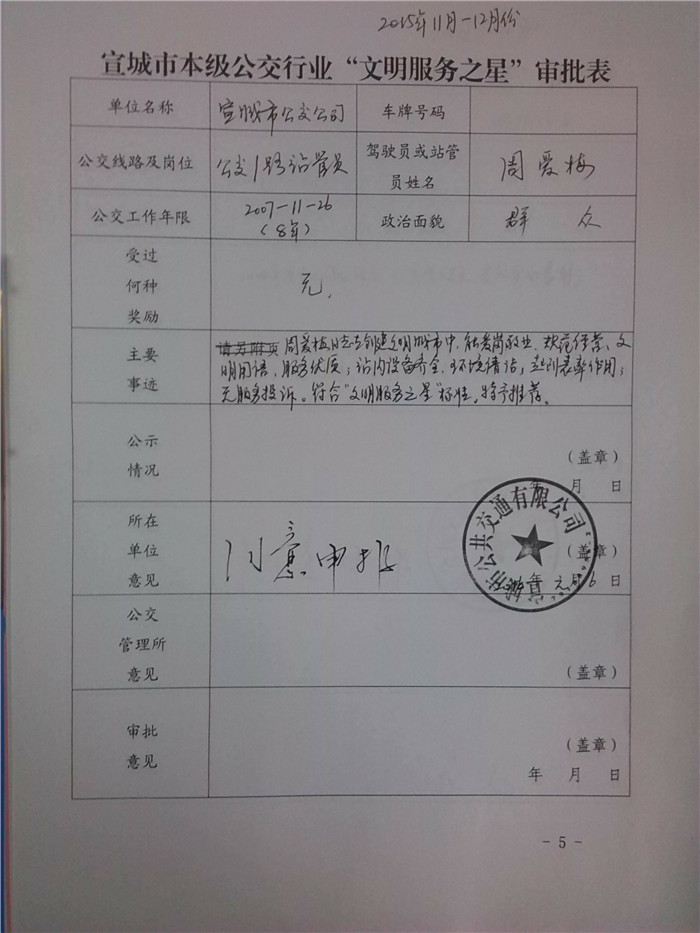 2015年11月-12月份
宣城市本级公交行业“文明服务之星”审批表
单位名称 宣城市公交公司 车牌号码
公交线路及岗位 公交1路站管员 驾驶员或站管
员姓名 周爱梅
公交工作年限 2007-11-26
(8年) 政治面貌 群众
受过
何种
奖励
无.
主要
事迹
请另附页 周爱梅同志在创建文明城市中,能爱岗敬业、规范经营、文
明用语、服务优质;站内设备齐全、环境清洁,起到表率作用;
无服务投诉。符合“文明服务之星”标准,特予推荐。
公示
情况
(盖章)
年 月 日
所在
单位
意见
同意申报
公共交通有限公司
(盖章)
年 元月6日
公交
管理所
意见
(盖章)
审批
意见
(盖章)
年 月 日
- 5 -